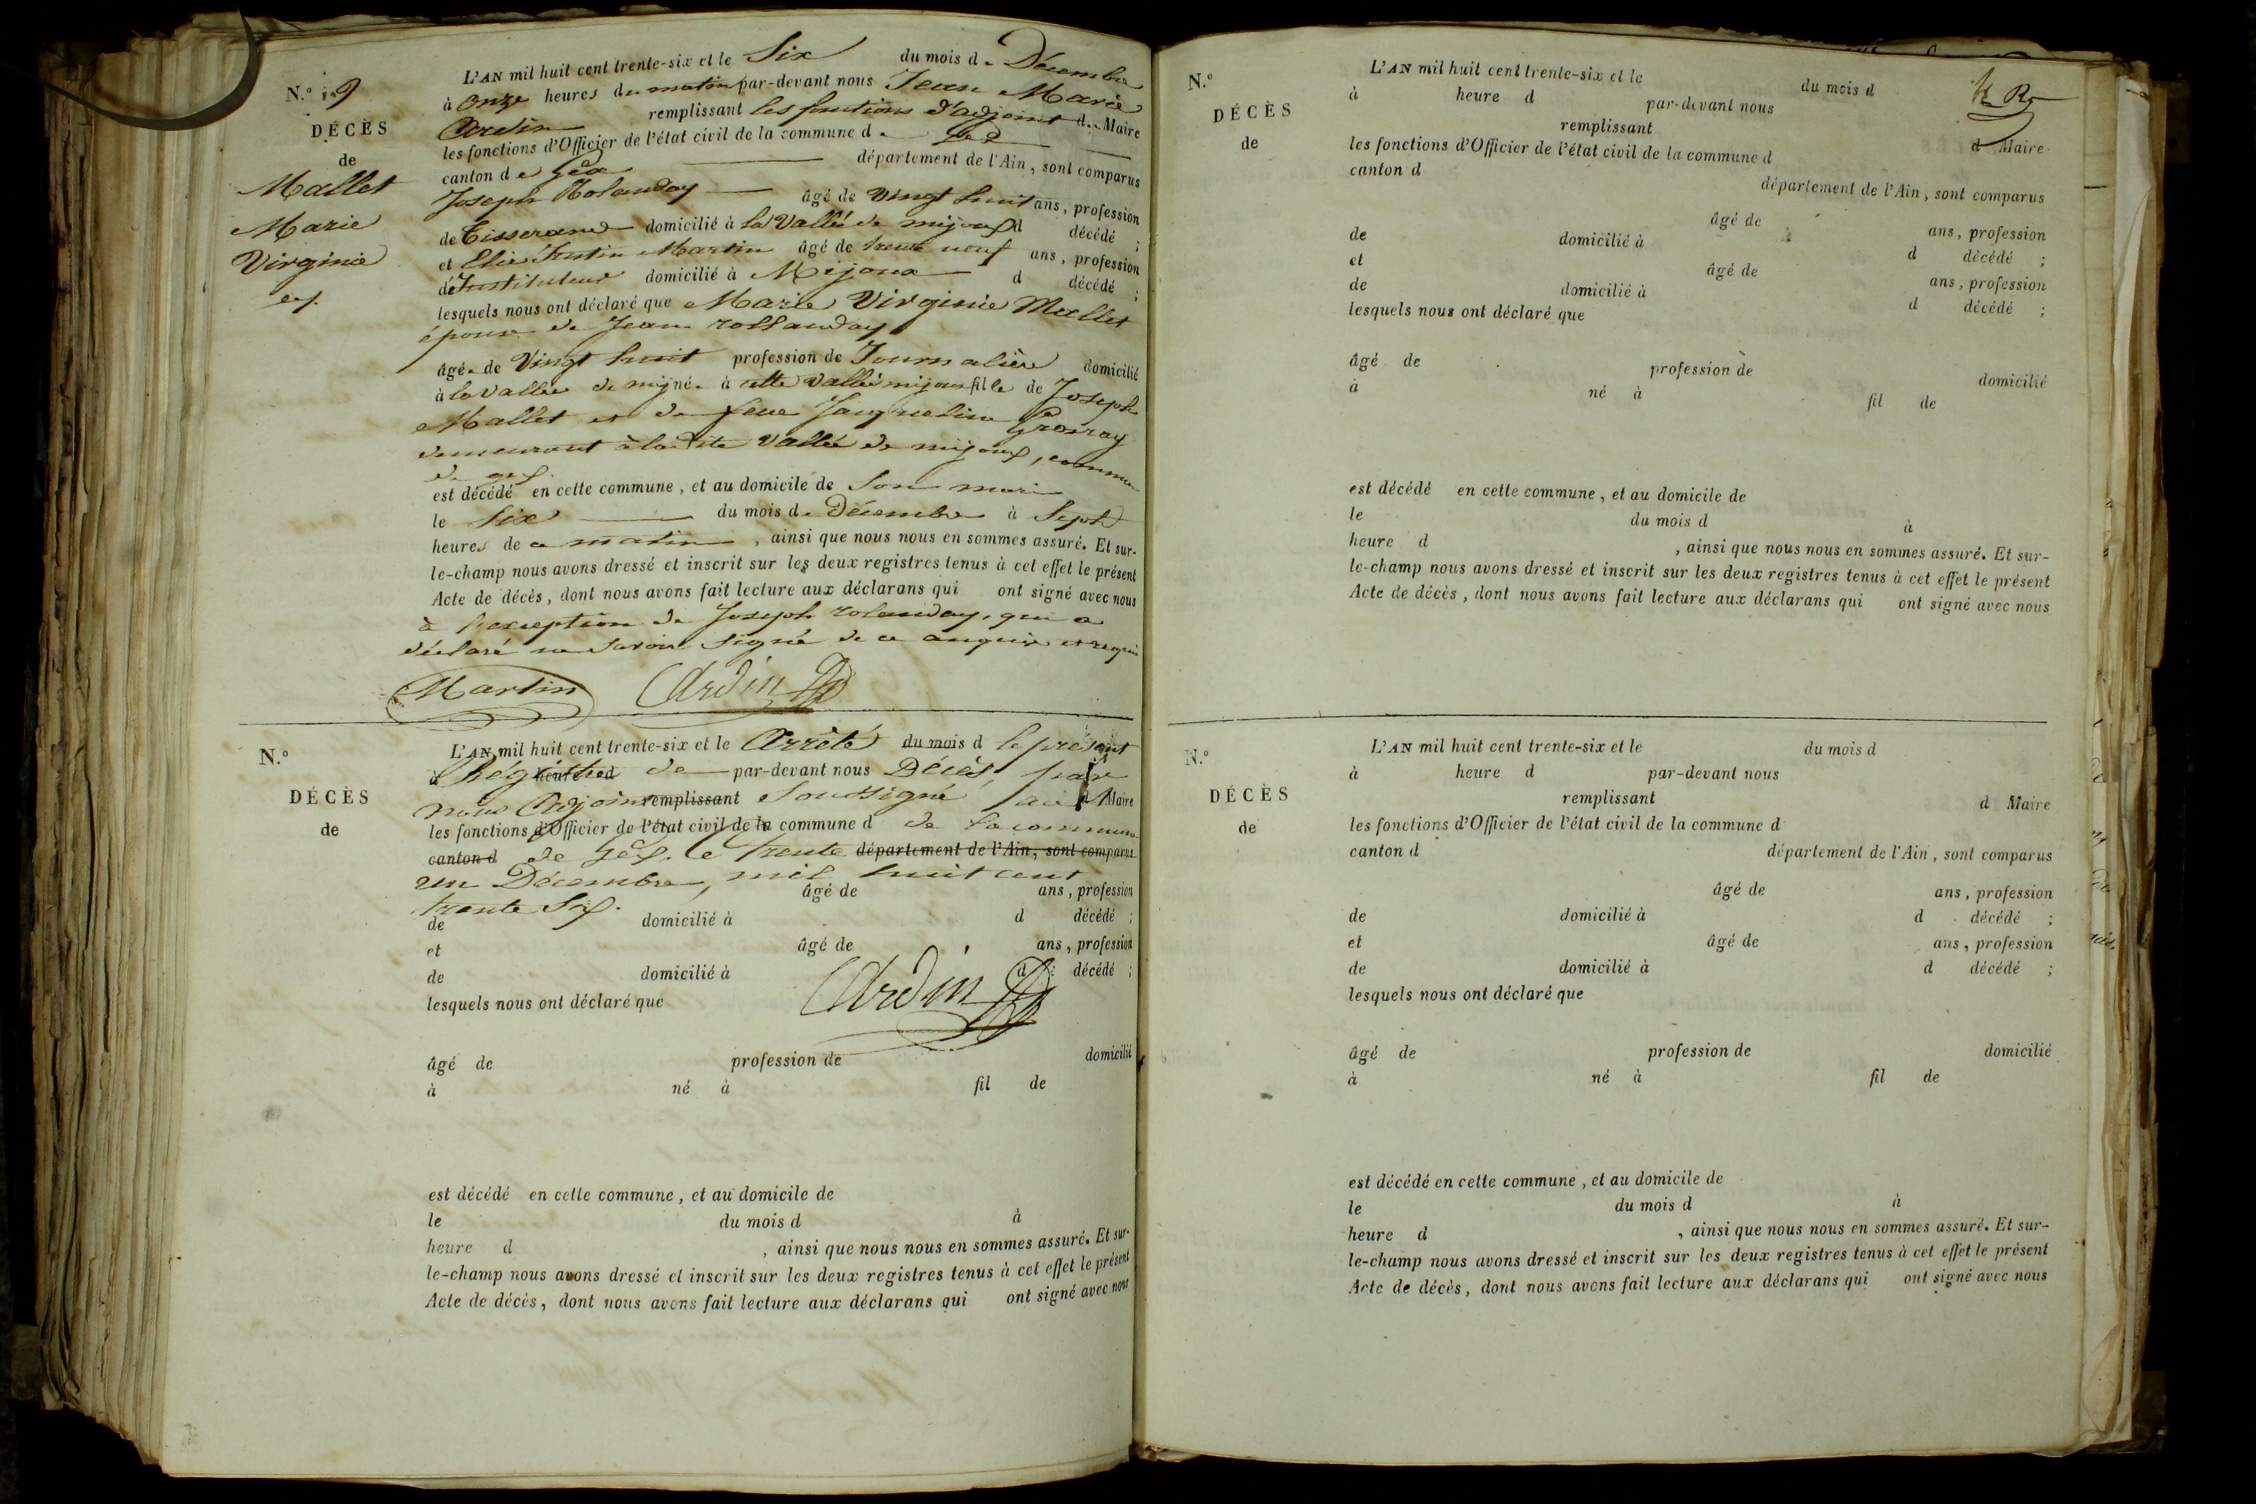 N.° 19
DÉCÈS
de
Mallet
Marie
Virginie
L'AN mil huit cent trente-six et le Six du mois de Décembre
à onze heures du matin par-devant nous Jean Marie
Ardin remplissant les fontions d'adjoint de Maire
les fonctions d'Officier de l'état civil de la commune de
canton de Gex département de l'Ain, sont comparus
Joseph Rolanday âgé de Vingt huit ans, profession
de Tisserand domicilié à la Vallée de mijoux d décédé ;
et Elie Justin Martin âgé de trente neuf ans, profession
de Instituteur domicilié à Mijoux d décédé ;
lesquels nous ont déclaré que Marie Virginie Mallet
épouse de Jean rollanday
âgée de Vingt huit profession de Journalière domicilié
à la vallée de mij née à cette vallée mijoux fille de Joseph
Mallet et de feue Jacqueline Grosray
demeurant à la dite Vallée de mijoux, commune
de gex
est décédé en cette commune, et au domicile de Son mari
le Six du mois de Décembre à Sept
heures de ce matin, ainsi que nous nous en sommes assuré. Et sur-
le-champ nous avons dressé et inscrit sur les deux registres tenus à cet effet le présent
Acte de décès, dont nous avons fait lecture aux déclarans qui ont signé avec nous
à l'exception de Joseph rolanday, qui a
déclaré ne Savoir signé de ce enquis et requis
Martin Ardin
N.°
DÉCÈS
de
L'AN mil huit cent trente-six et le Arrêté du mois d le présent
à Régistre heure d de par-devant nous Décès, par
nous Adjoint remplissant Soussigné, d Maire
les fonctions d'Officier de l'état civil de la commune d de la commune
canton d de Gex. le trente département de l'Ain, sont comparus
un Décembre, mil huit cent
âgé de ans, profession
trente Six.
de domicilié à d décédé ;
et âgé de ans, profession
de domicilié à d décédé ;
lesquels nous ont déclaré que
Ardin
âgé de profession de domicilié
à né à fil de
est décédé en cette commune, et au domicile de
le du mois d à
heure d , ainsi que nous nous en sommes assuré. Et sur-
le-champ nous avons dressé et inscrit sur les deux registres tenus à cet effet le présent
Acte de décès, dont nous avons fait lecture aux déclarans qui ont signé avec nous
N.°
DÉCÈS
de
L'AN mil huit cent trente-six et le du mois d
à heure d par-devant nous
remplissant d Maire
les fonctions d'Officier de l'état civil de la commune d
canton d département de l'Ain, sont comparus
âgé de ans, profession
de domicilié à d décédé ;
et âgé de ans, profession
de domicilié à d décédé ;
lesquels nous ont déclaré que
âgé de profession de domicilié
à né à fil de
est décédé en cette commune, et au domicile de
le du mois d à
heure d , ainsi que nous nous en sommes assuré. Et sur-
le-champ nous avons dressé et inscrit sur les deux registres tenus à cet effet le présent
Acte de décès, dont nous avons fait lecture aux déclarans qui ont signé avec nous
N.°
DÉCÈS
de
L'AN mil huit cent trente-six et le du mois d
à heure d par-devant nous
remplissant d Maire
les fonctions d'Officier de l'état civil de la commune d
canton d département de l'Ain, sont comparus
âgé de ans, profession
de domicilié à d décédé ;
et âgé de ans, profession
de domicilié à d décédé ;
lesquels nous ont déclaré que
âgé de profession de domicilié
à né à fil de
est décédé en cette commune, et au domicile de
le du mois d à
heure d , ainsi que nous nous en sommes assuré. Et sur-
le-champ nous avons dressé et inscrit sur les deux registres tenus à cet effet le présent
Acte de décès, dont nous avons fait lecture aux déclarans qui ont signé avec nous